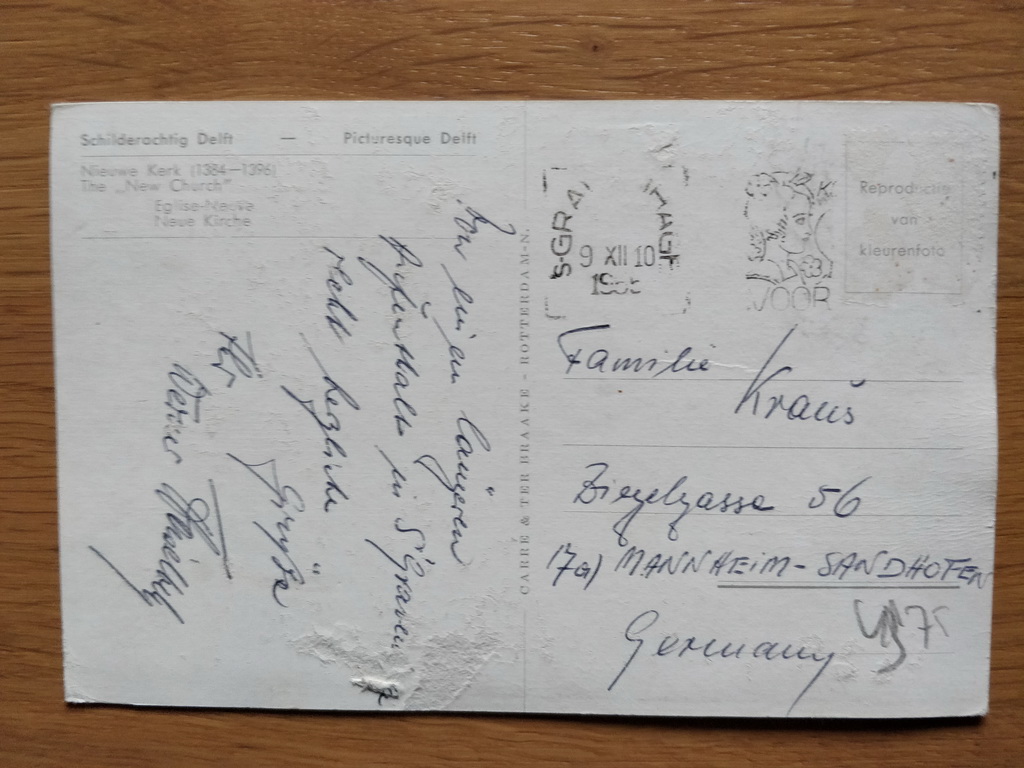 Schilderachtig Delft — Picturesque Delft
Nieuwe Kerk (1384—1396)
The „New Church"
Eglise-Neuve
Neue Kirche
Von einem längeren
Aufenthalt in S'Graven
recht herzliche
Grüße
Ihr
Werner
CARRÉ & TER BRAAKE - ROTTERDAM-N.
S-GRA HAGE
9 XII 10
VOOR
Reproductie
van
kleurenfoto
Familie
Kraus
Ziegelgasse 56
17a) MANNHEIM-SANDHOFEN
Germany